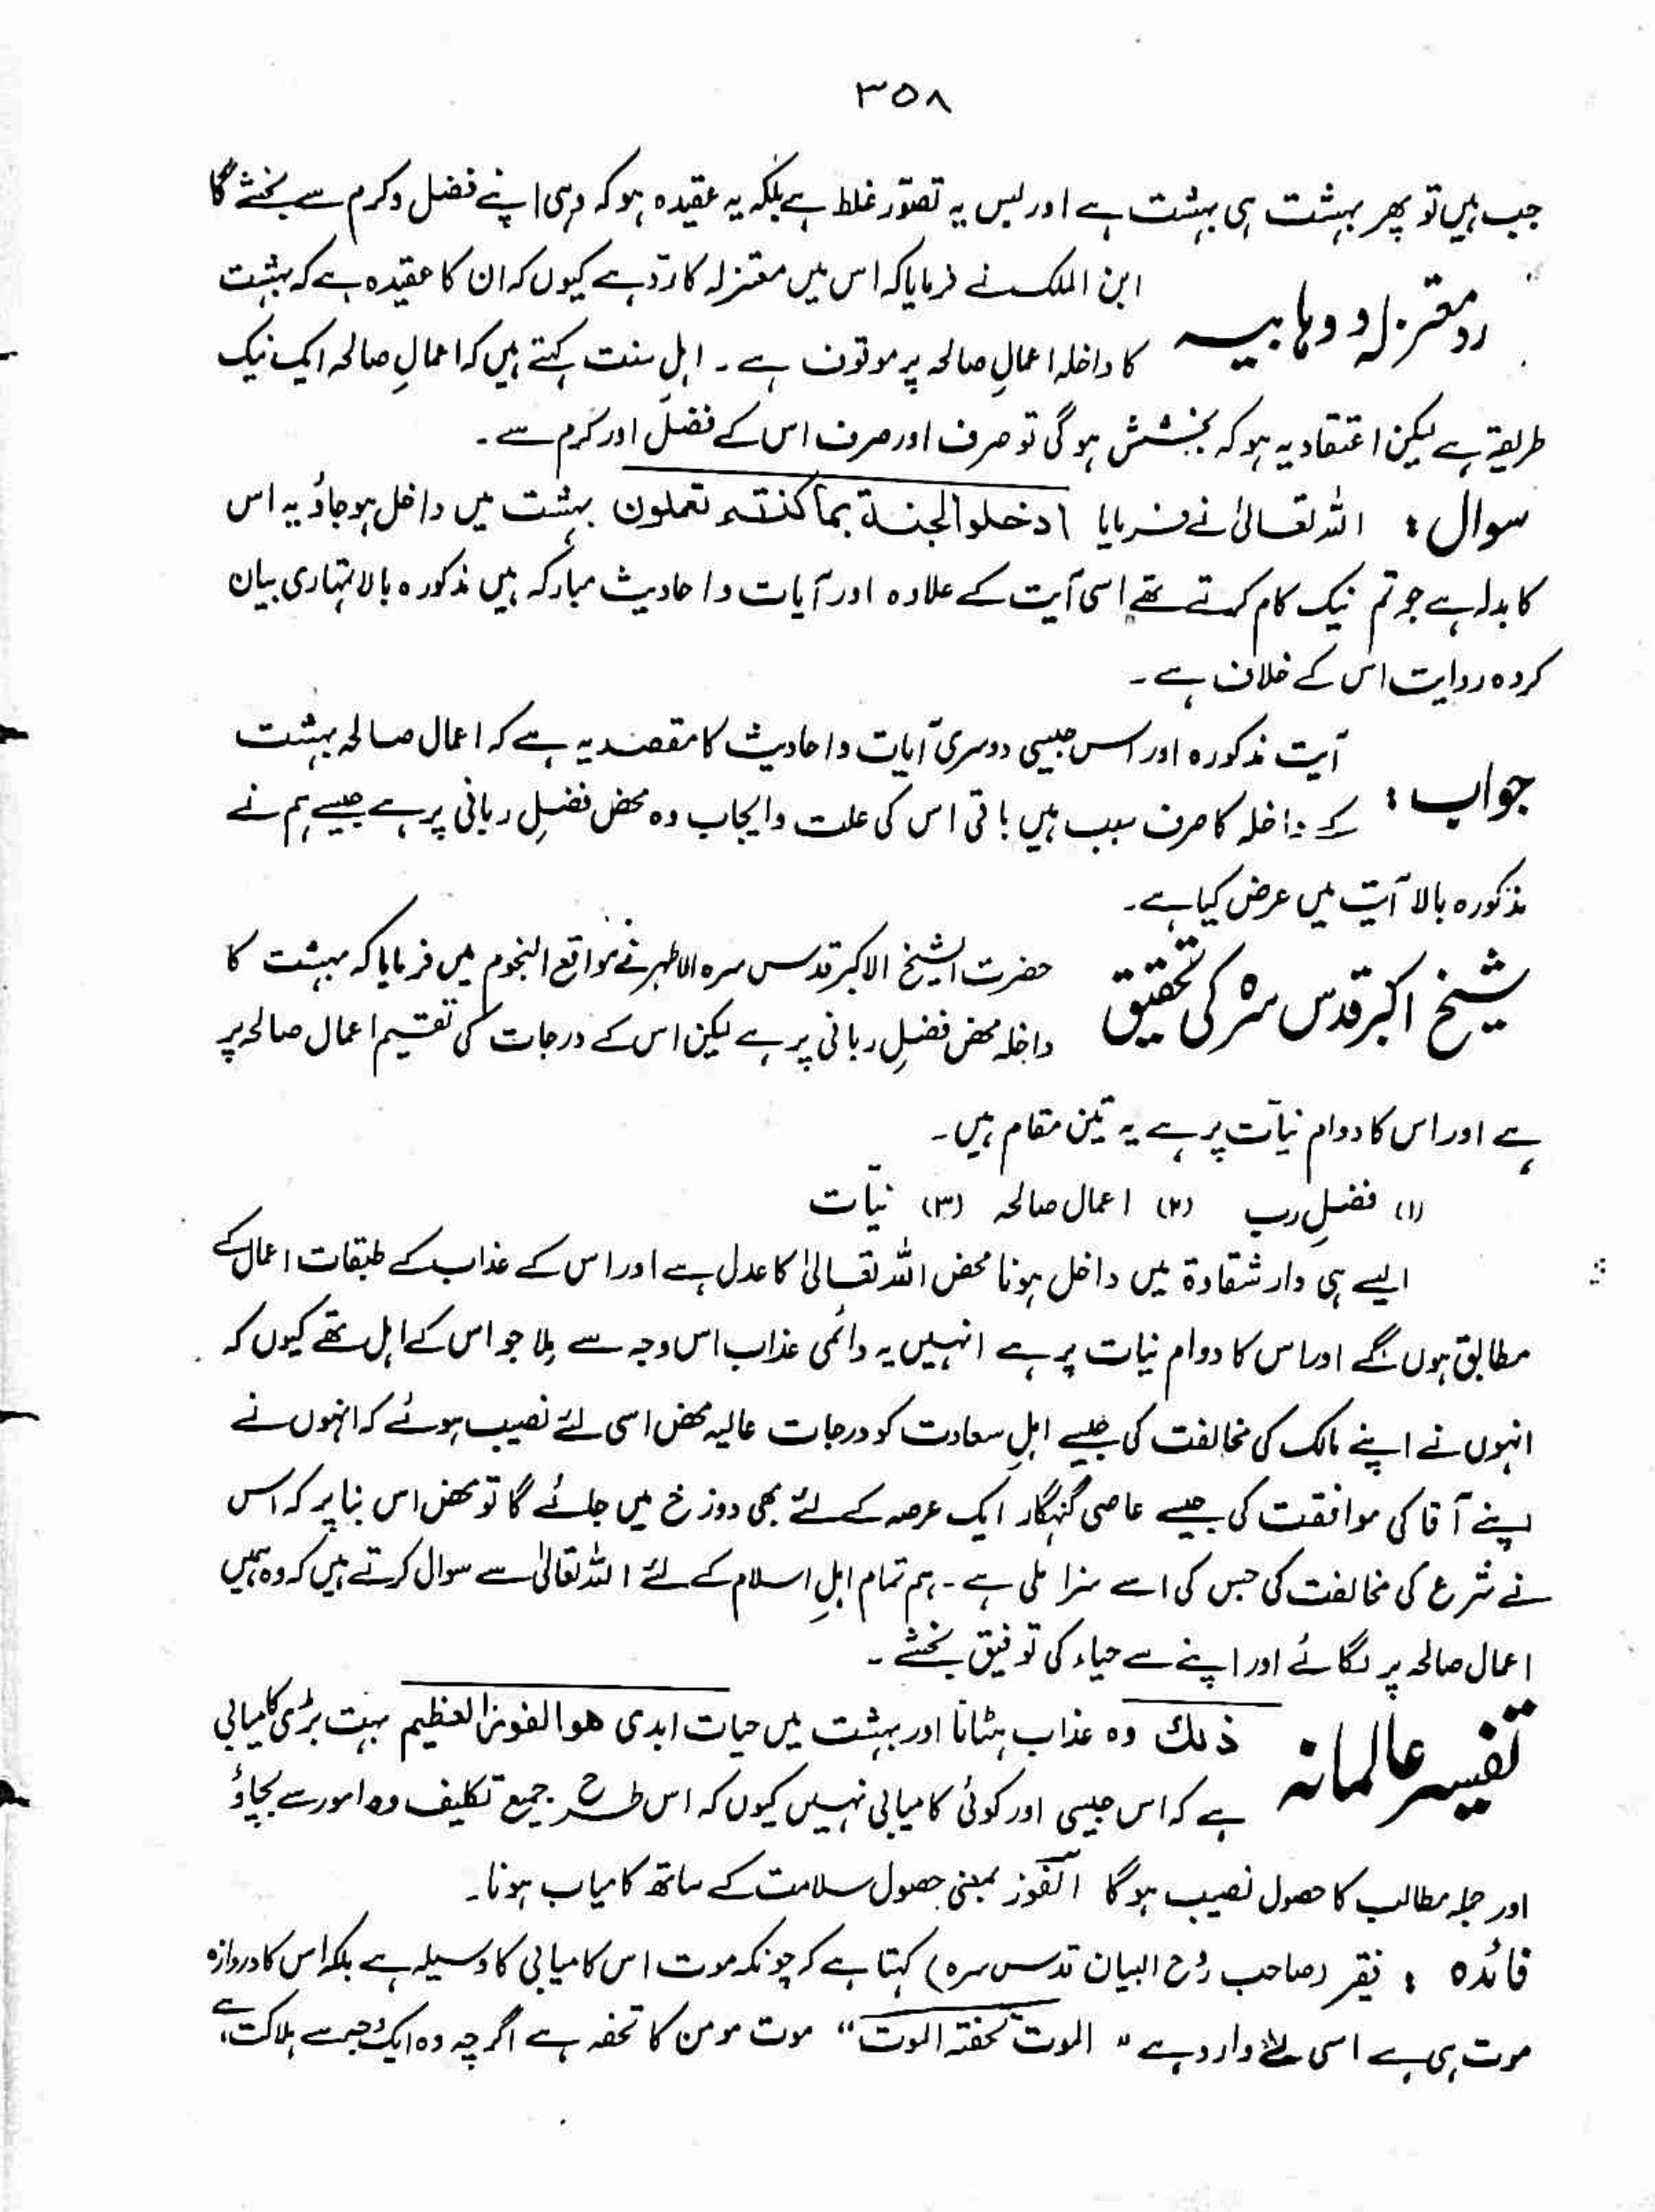 ۳۵۸
جب ہیں تو پھر بہشت ہی بہشت ہے اور بس یہ تصوّر غلط ہے بلکہ یہ عقیدہ ہو کہ وہی اپنے فضل و کرم سے بخشے گا
ردِ معتزلہ و وہابیہ
ابن الملک نے فرمایا کہ اس میں معتزلہ کا ردّ ہے کیوں کہ ان کا عقیدہ ہے کہ بہشت
کا داخلہ اعمالِ صالحہ پر موقوف ہے ۔ اہلِ سنت کہتے ہیں کہ اعمالِ صالحہ ایک نیک
طریقہ ہے لیکن اعتقاد یہ ہو کہ بخشش ہو گی تو صرف اور صرف اس کے فضل اور کرم سے ۔
سوال : اللہ تعالیٰ نے فرمایا ادخلو الجنۃ بما کنتم تعملون بہشت میں داخل ہو جاؤ یہ اس
کا بدلہ ہے جو تم نیک کام کرتے تھے اسی آیت کے علاوہ اور آیات و احادیث مبارکہ ہیں مذکورہ بالا تمہاری بیان
کردہ روایت اس کے خلاف ہے ۔
جواب : آیت مذکورہ اور اس جیسی دوسری آیات و احادیث کا مقصد یہ ہے کہ اعمال صالحہ بہشت
کے داخلہ کا صرف سبب ہیں باقی اس کی علت و ایجاب وہ محض فضلِ ربانی پر ہے جیسے ہم نے
مذکورہ بالا آیت میں عرض کیا ہے ۔
شیخ اکبر قدس سرہ کی تحقیق
حضرت الشیخ الاکبر قدس سرہ الاطہر نے مواقع النجوم میں فرمایا کہ بہشت کا
داخلہ محض فضلِ ربانی پر ہے لیکن اس کے درجات کی تقسیم اعمال صالحہ پر
ہے اور اس کا دوام نیّات پر ہے یہ تین مقام ہیں ۔
(۱) فضلِ رب (۲) اعمال صالحہ (۳) نیّات
ایسے ہی دار شقاوۃ میں داخل ہونا محض اللہ تعالیٰ کا عدل ہے اور اس کے عذاب کے طبقات اعمال کے
مطابق ہوں گے اور اس کا دوام نیات پر ہے انہیں یہ دائمی عذاب اس وجہ سے ملا جو اس کے اہل تھے کیوں کہ
انہوں نے اپنے مالک کی مخالفت کی جیسے اہلِ سعادت کو درجات عالیہ محض اسی لئے نصیب ہوئے کہ انہوں نے
اپنے آقا کی موافقت کی جیسے عاصی گنہگار ایک عرصہ کے لئے بھی دوزخ میں جائے گا تو محض اس بنا پر کہ اس
نے شرع کی مخالفت کی جس کی اسے سزا ملی ہے ۔ ہم تمام اہلِ اسلام کے لئے اللہ تعالیٰ سے سوال کرتے ہیں کہ وہ ہمیں
اعمال صالحہ پر لگائے اور اپنے سے حیاء کی توفیق بخشے ۔
تفسیر عالمانہ
ذلک وہ عذاب ہٹانا اور بہشت میں حیات ابدی ھو الفوز العظیم بہت بڑی کامیابی
ہے کہ اس جیسی اور کوئی کامیابی نہیں کیوں کہ اس طرح جمیع تکلیف دہ امور سے بچاؤ
اور جملہ مطالب کا حصول نصیب ہو گا الفوز بمعنی حصول سلامت کے ساتھ کامیاب ہونا۔
فائدہ : فقیر (صاحب رُوح البیان قدس سرہ) کہتا ہے کہ چونکہ موت اس کامیابی کا وسیلہ ہے بلکہ اس کا دروازہ
موت ہی ہے اسی لئے وارد ہے " الموت تحفتہ الموت " موت مومن کا تحفہ ہے اگرچہ وہ ایک وجہ سے ہلاکت ہے